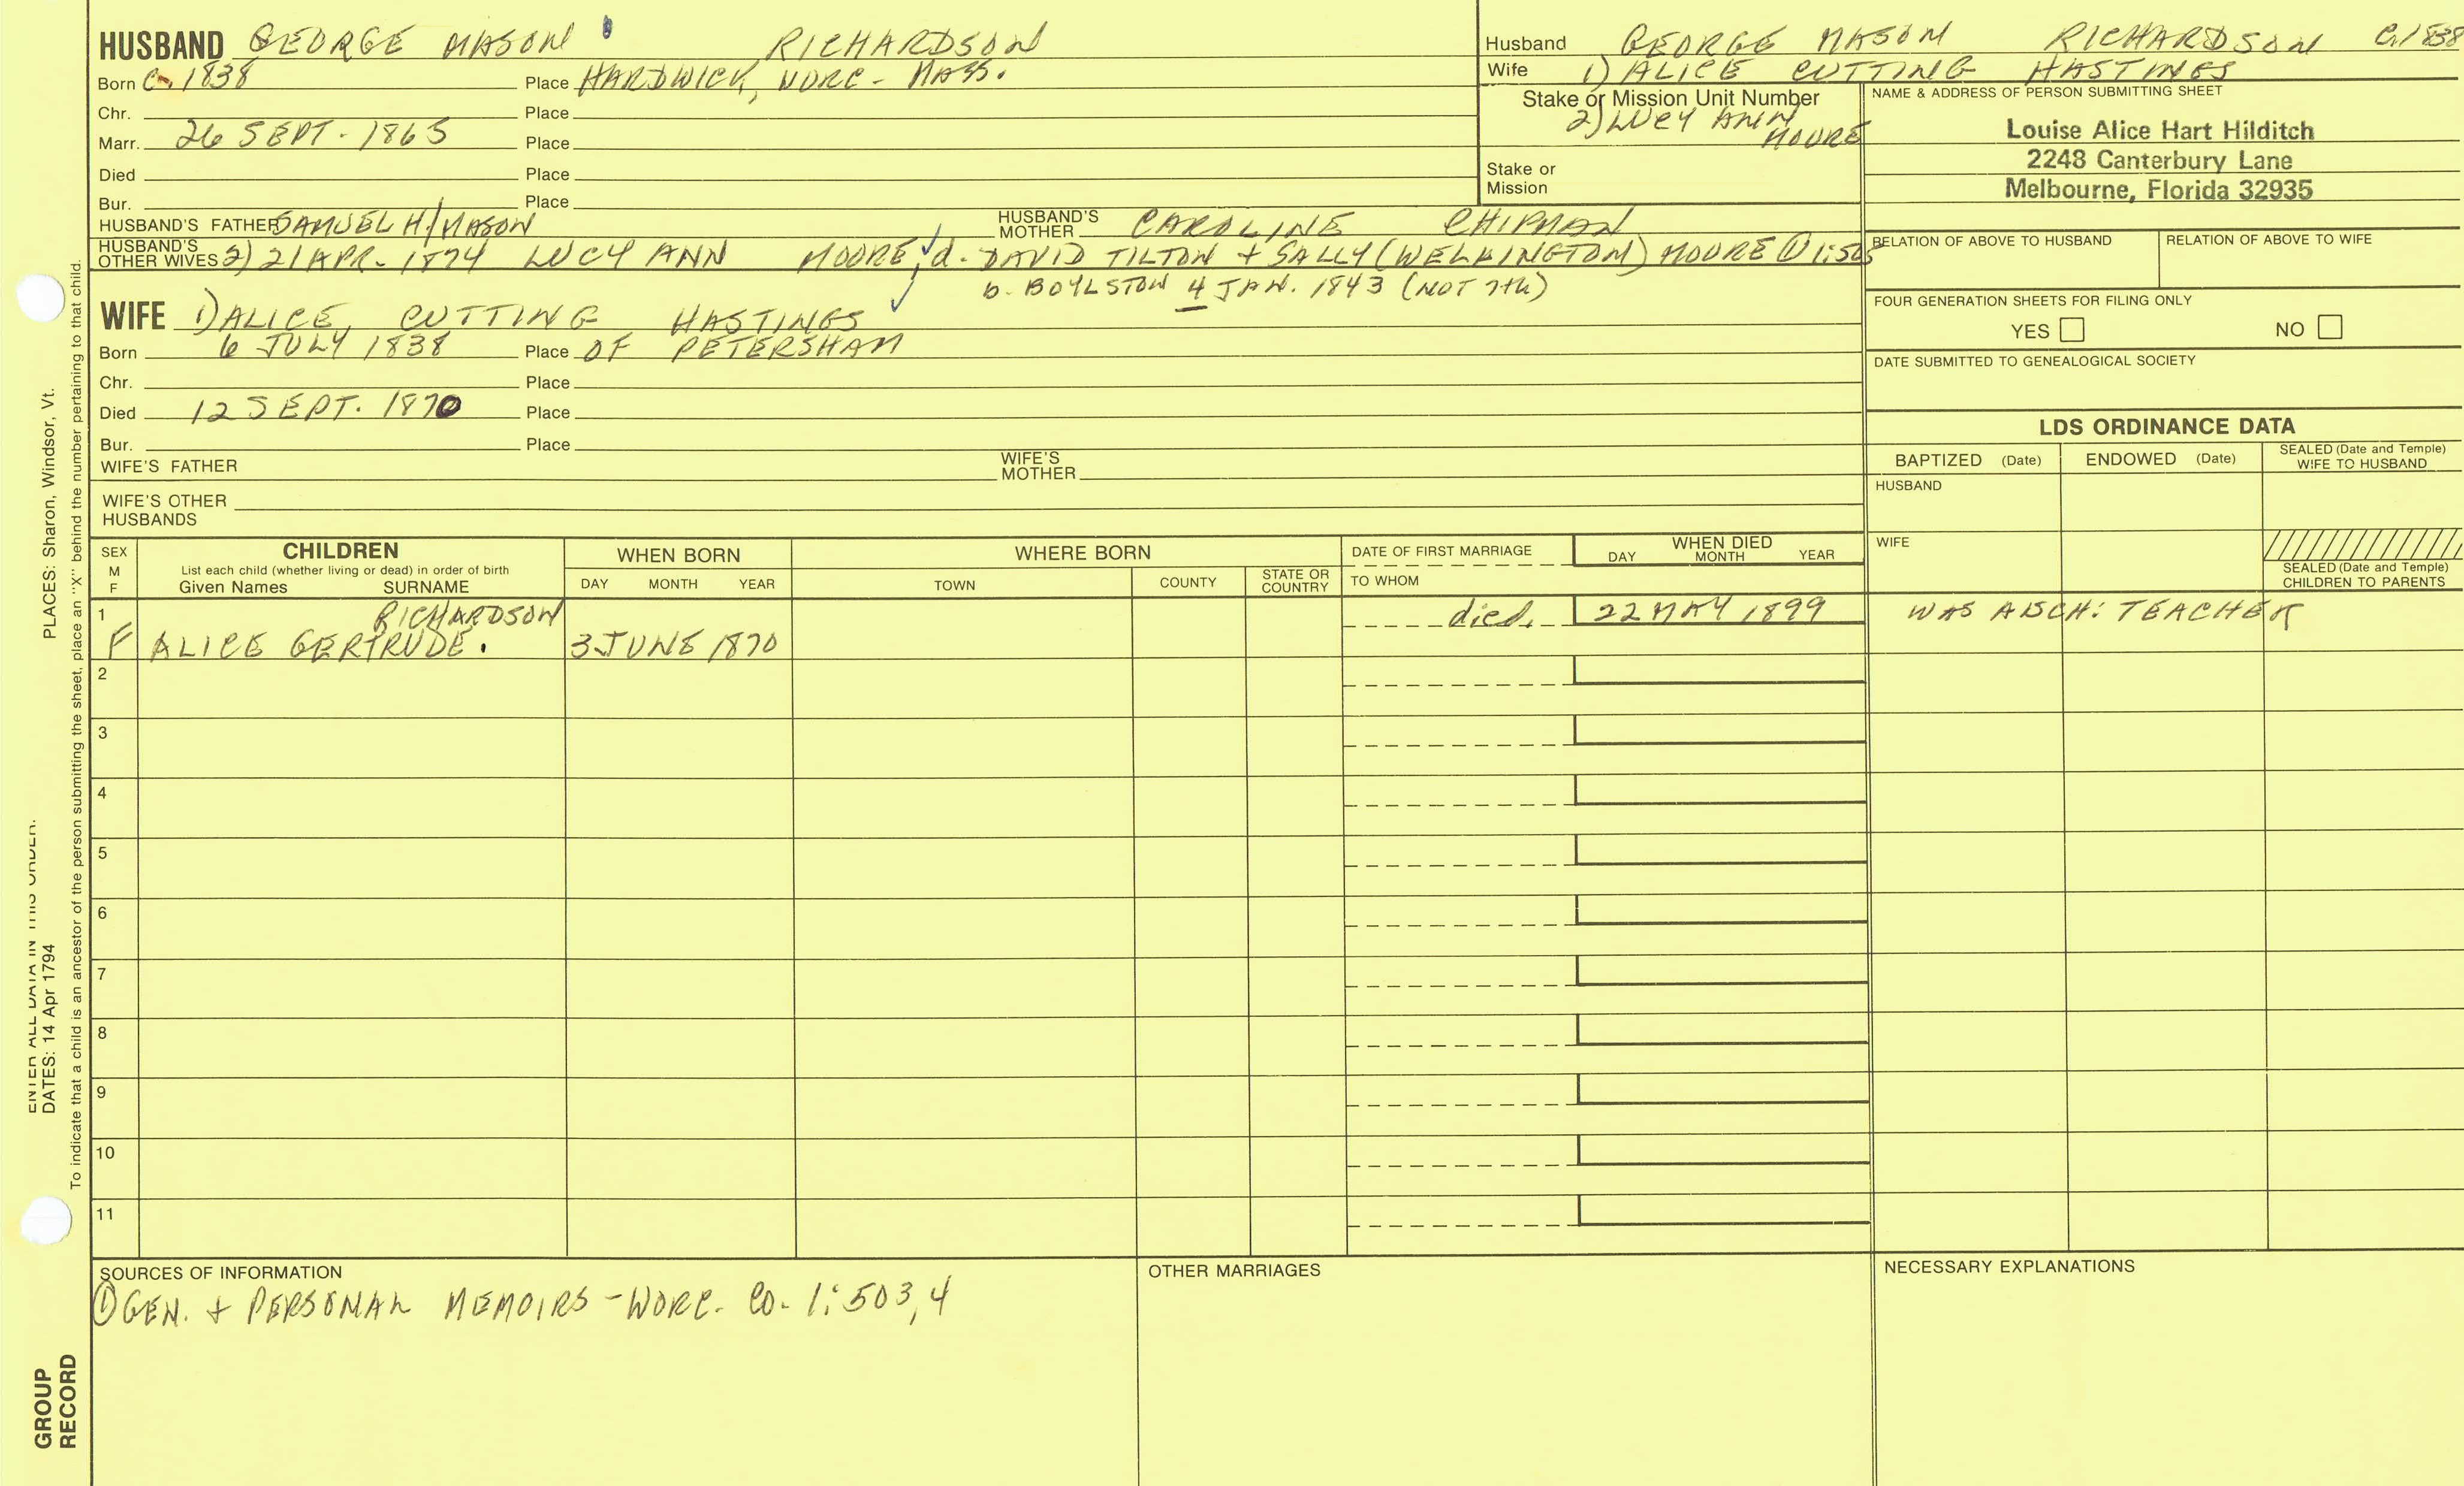 HUSBAND GEORGE MASON RICHARDSON
Born C. 1838 Place HARDWICK, WORC - MASS.
Chr. Place
Marr. 26 SEPT - 1865 Place
Died Place
Bur. Place
HUSBAND'S FATHER SAMUEL H/MASON HUSBAND'S MOTHER CAROLINE CHIPMAN
HUSBAND'S OTHER WIVES 2) 21 APR - 1874 LUCY ANN MOORE, d. DAVID TILTON + SALLY (WELLINGTON) MOORE ① 1:503
b. BOYLSTON 4 JAN. 1843 (NOT 7th)
WIFE 1) ALICE CUTTING HASTINGS
Born 6 JULY 1838 Place OF PETERSHAM
Chr. Place
Died 12 SEPT. 1870 Place
Bur. Place
WIFE'S FATHER WIFE'S MOTHER
WIFE'S OTHER HUSBANDS
Husband GEORGE MASON RICHARDSON C.1838
Wife 1) ALICE CUTTING HASTINGS
Stake or Mission Unit Number
2) LUCY ANN
MOORE
Stake or Mission
NAME & ADDRESS OF PERSON SUBMITTING SHEET
Louise Alice Hart Hilditch
2248 Canterbury Lane
Melbourne, Florida 32935
RELATION OF ABOVE TO HUSBAND RELATION OF ABOVE TO WIFE
FOUR GENERATION SHEETS FOR FILING ONLY
YES NO
DATE SUBMITTED TO GENEALOGICAL SOCIETY
LDS ORDINANCE DATA
BAPTIZED (Date) ENDOWED (Date) SEALED (Date and Temple) WIFE TO HUSBAND
HUSBAND
WIFE
SEALED (Date and Temple) CHILDREN TO PARENTS
SEX M F
CHILDREN
List each child (whether living or dead) in order of birth
Given Names SURNAME
WHEN BORN
DAY MONTH YEAR
WHERE BORN
TOWN COUNTY STATE OR COUNTRY
DATE OF FIRST MARRIAGE
TO WHOM
WHEN DIED
DAY MONTH YEAR
1 RICHARDSON died. 22 MAY 1899 WAS A SCH: TEACHER
F ALICE GERTRUDE. 3 JUNE 1870
2
3
4
5
6
7
8
9
10
11
SOURCES OF INFORMATION
① GEN. + PERSONAL MEMOIRS - WORC. CO. 1:503,4
OTHER MARRIAGES
NECESSARY EXPLANATIONS
PLACES: Sharon, Windsor, Vt.
ENTER ALL DATA IN THIS ORDER:
DATES: 14 Apr 1794
To indicate that a child is an ancestor of the person submitting the sheet, place an "X" behind the number pertaining to that child.
GROUP
RECORD